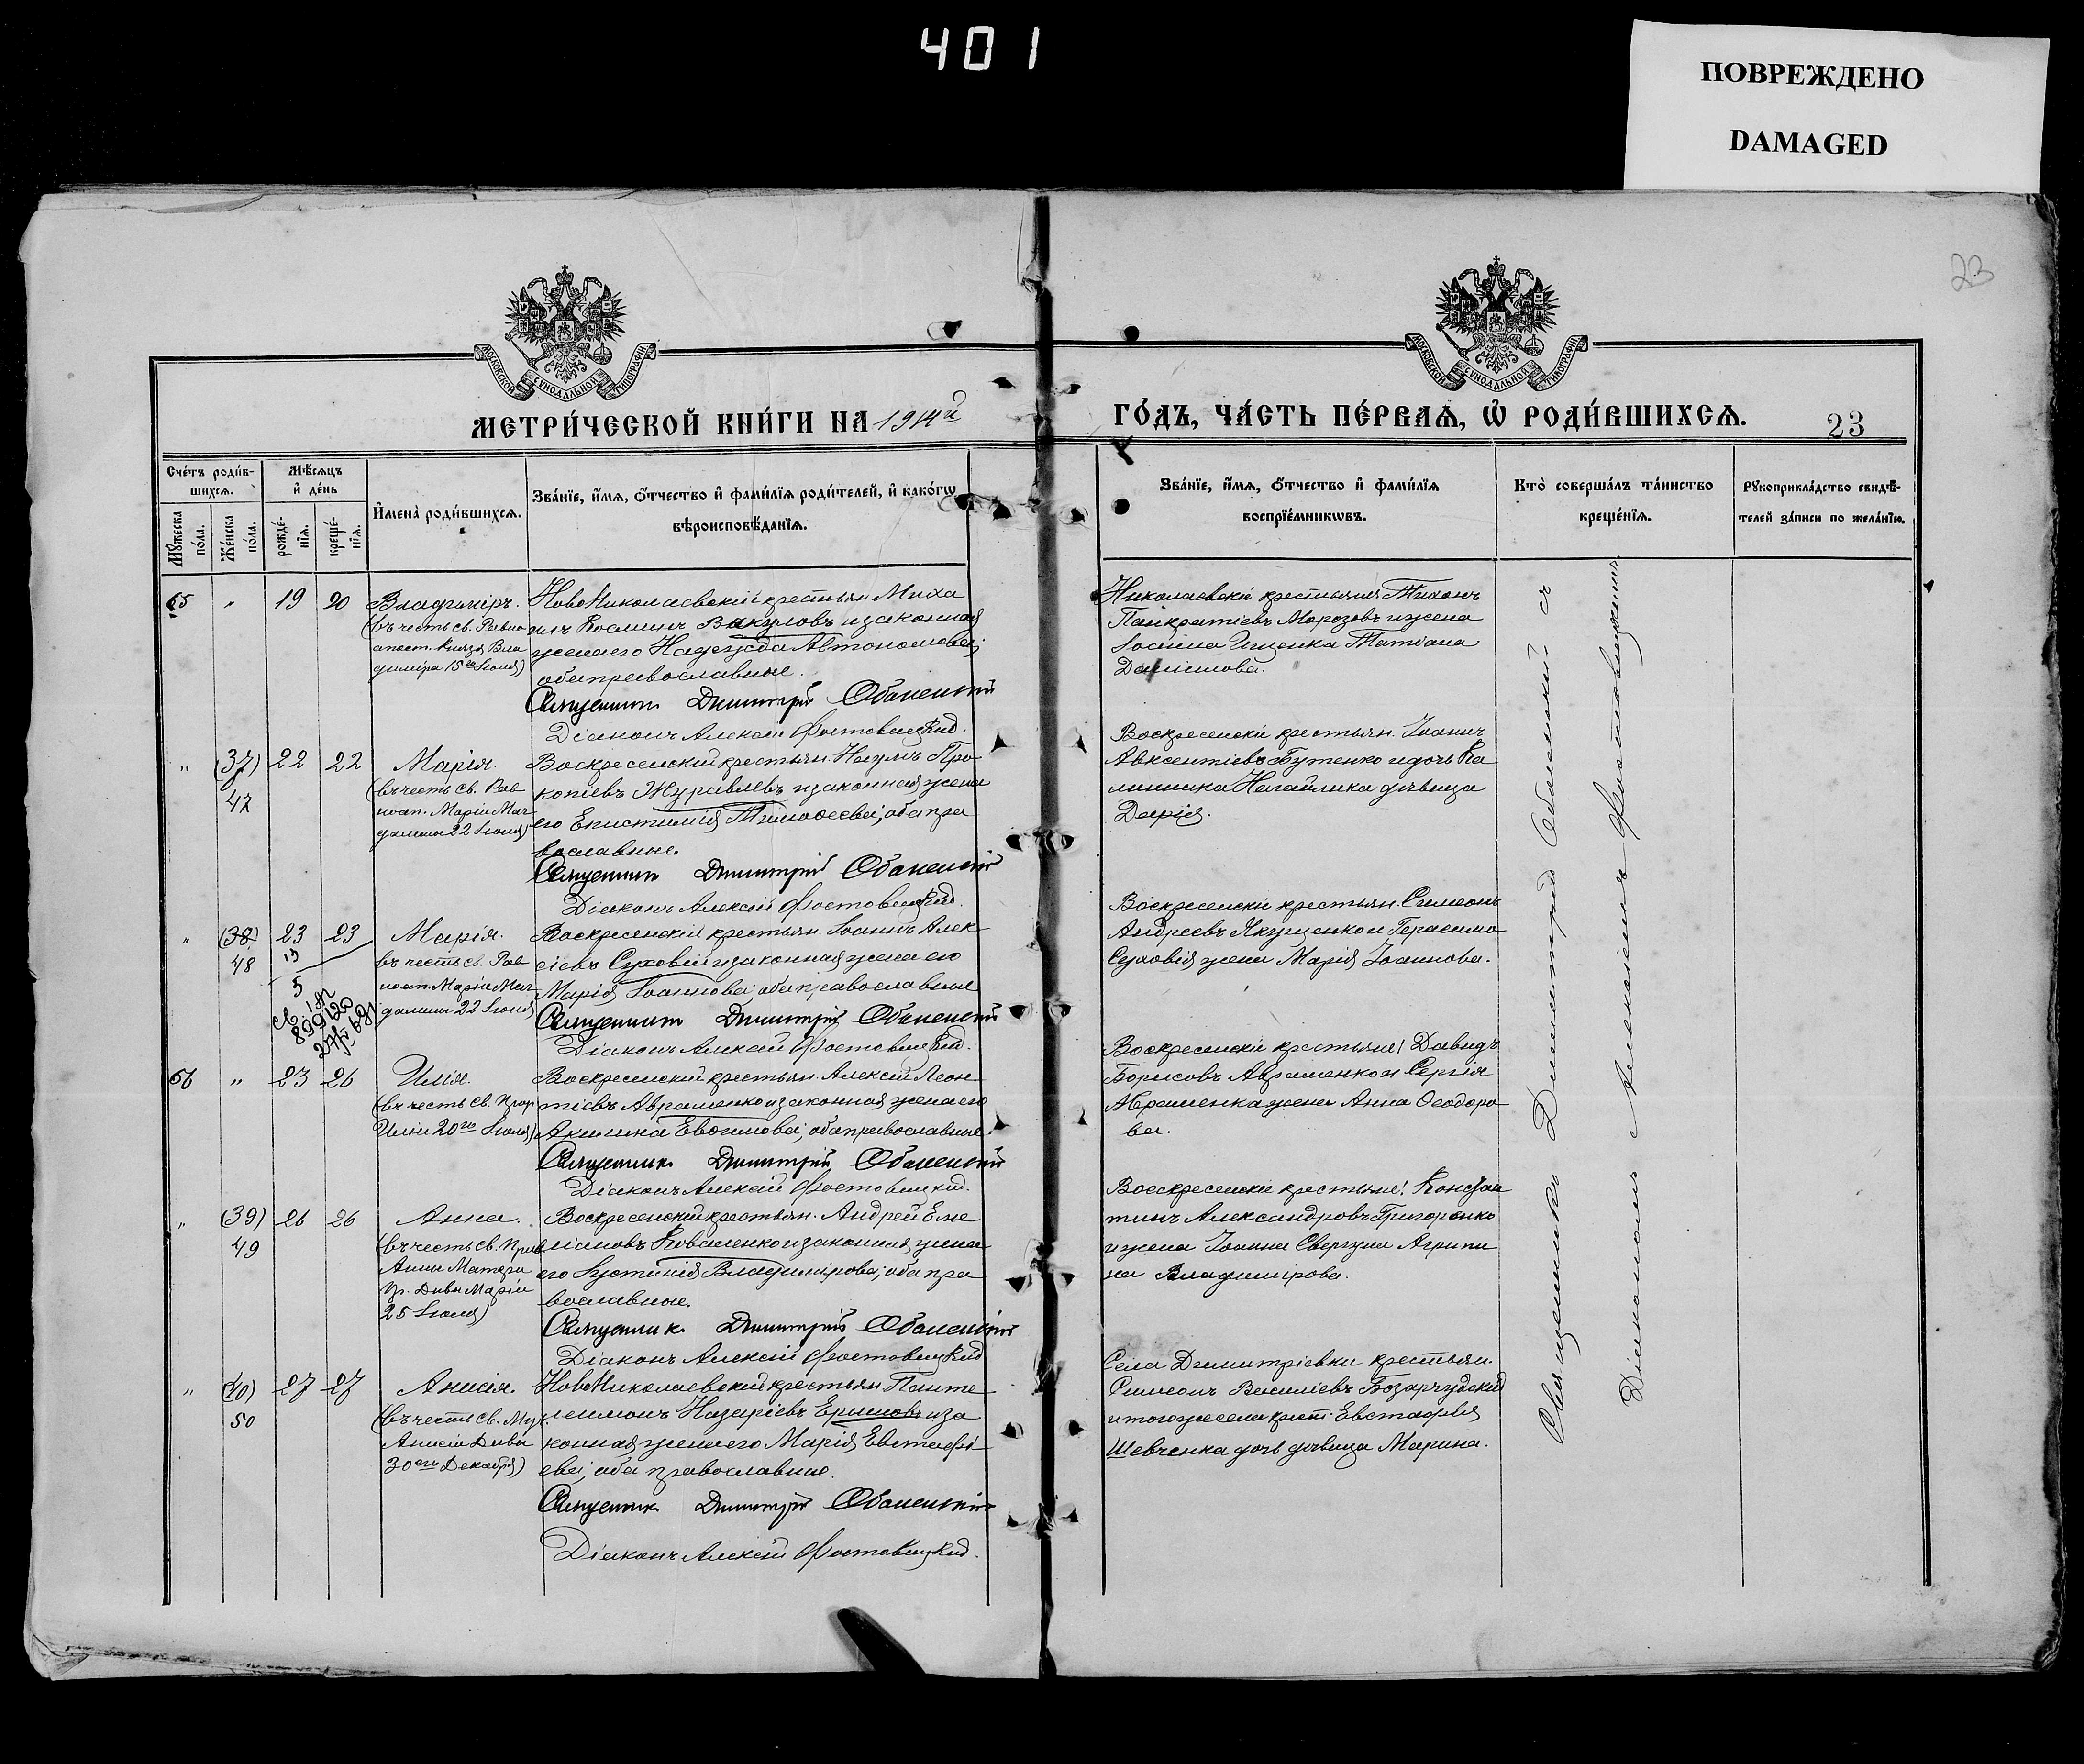 401
ПОВРЕЖДЕНО
DAMAGED
23
МОСКОВСКОЙ СѴНОДАЛЬНОЙ ТИПОГРАФІИ
МОСКОВСКОЙ СѴНОДАЛЬНОЙ ТИПОГРАФІИ
МЕТРИ́ЧЕСКОЙ КНИ́ГИ НА 1914й
ГО́ДЪ, ЧА́СТЬ ПЕ́РВАѦ, Ѡ҆ РОДИ́ВШИХСѦ.
23
Сче́тъ роди́в-
шихсѧ.
Мꙋ́жеска по́ла.
Же́нска по́ла.
Мѣ́сѧцъ
и҆ де́нь
рожде́-
нїѧ.
креще́-
нїѧ.
И҆мена̀ роди́вшихсѧ.
Зва́нїе, и҆́мѧ, ѻ҆́тчество и҆ фами́лїѧ роди́телей, и҆ како́гѡ
вѣроисповѣ́данїѧ.
Зва́нїе, и҆́мѧ, ѻ҆́тчество и҆ фами́лїѧ
воспрїе́мникѡвъ.
Кто̀ соверша́лъ та́инство
креще́нїѧ.
Рꙋкоприкла́дство свидѣ́-
телей за́писи по жела́нїю.
65 " 19 20 Владиміръ.
(въ честь св. Равно
апост. Князя Вла
диміра 15го Іюля)
НовоНиколаевскій крестьян. Миха
илъ Косминъ Вакуловъ и законная
жена его Надежда Автономова;
оба православные.
Священникъ Димитрій Оболенскій
Діаконъ Алексій Фостовицкій.
Николаевскіе крестьяне Тихонъ
Панкратіевъ Морозовъ и жена
Іоанна Ищенка Татіана
Даніилова.
" (37) 22 22 Марія.
47
(въ честь св. Рав
ноап. Маріи Маг
далины 22 Іюля)
Воскресенскій крестьян. Наумъ Про
копіевъ Журавлевъ и законная жена
его Епистимія Тимоѳеева; оба пра
вославные.
Священникъ Димитрій Оболенскій
Діаконъ Алексій Фостовицкій.
Воскресенскіе крестьян. Іоаннъ
Авксентіевъ Бутенко и дочь Ка
линника Нагайлика дѣвица
Дарія.
" (38) 23 23 Марія.
48 13
въ честь св. Рав
ноап. Маріи Маг
далины 22 Іюля)
5
Воскресенскій крестьян. Іоаннъ Алек
сіевъ Суховій и законная жена его
Марія Іоаннова; оба православные
Священникъ Димитрій Оболенскій
Діаконъ Алексій Фостовицкій.
Воскресенскіе крестьян. Симеонъ
Андреевъ Якущенко и Герасима
Суховія жена Марія Іоаннова.
56 " 23 26 Илія.
(въ честь св. Прор
Иліи 20го Іюля)
Воскресенскій крестьян. Алексій Леон
тіевъ Авраменко и законная жена его
Акилина Евѳимова; оба православные.
Священникъ Димитрій Оболенскій
Діаконъ Алексій Фостовицкій.
Воскресенскіе крестьяне: Давидъ
Борисовъ Авраменко и Сергія
Авраменка жена Анна Ѳеодоро
ва.
" (39) 26 26 Анна.
49
(въ честь св. Прав
Анны Матери
Пр. Дѣвы Маріи
25 Іюля)
Воскресенскій крестьян. Андрей Еме
ліановъ Коваленко и законная жена
его Іустинія Владимірова; оба пра
вославные.
Священникъ Димитрій Оболенскій
Діаконъ Алексій Фостовицкій
Воскресенскіе крестьяне: Констан
тинъ Александровъ Григоренко
и жена Іоанна Свергуна Агрипи
на Владимірова.
" (40) 27 27 Анисія.
50
(въ честь св. Муч.
Анисіи Дѣвы
30го Декабря)
НовоНиколаевскій крестьян. Панте
леимонъ Назаріевъ Ершовъ и за
конная жена его Марія Евстафі
ева; оба православные.
Священникъ Димитрій Оболенскій
Діаконъ Алексій Фостовицкій.
Села Димитріевки крестьян.
Симеонъ Василіевъ Бозарчудский
и того же села крест. Евстафія
Шевченка дочь дѣвица Марина.
Священникъ Димитрій Оболенскій съ
Діакономъ Алексіемъ Фостовицкимъ